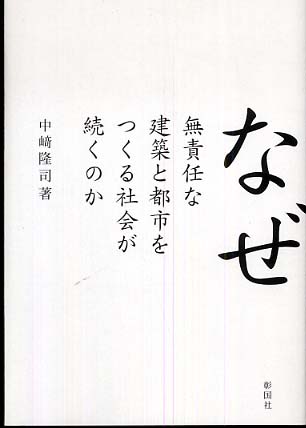 なぜ
無責任な
建築と都市を
つくる社会が
続くのか
中﨑隆司著
彰国社